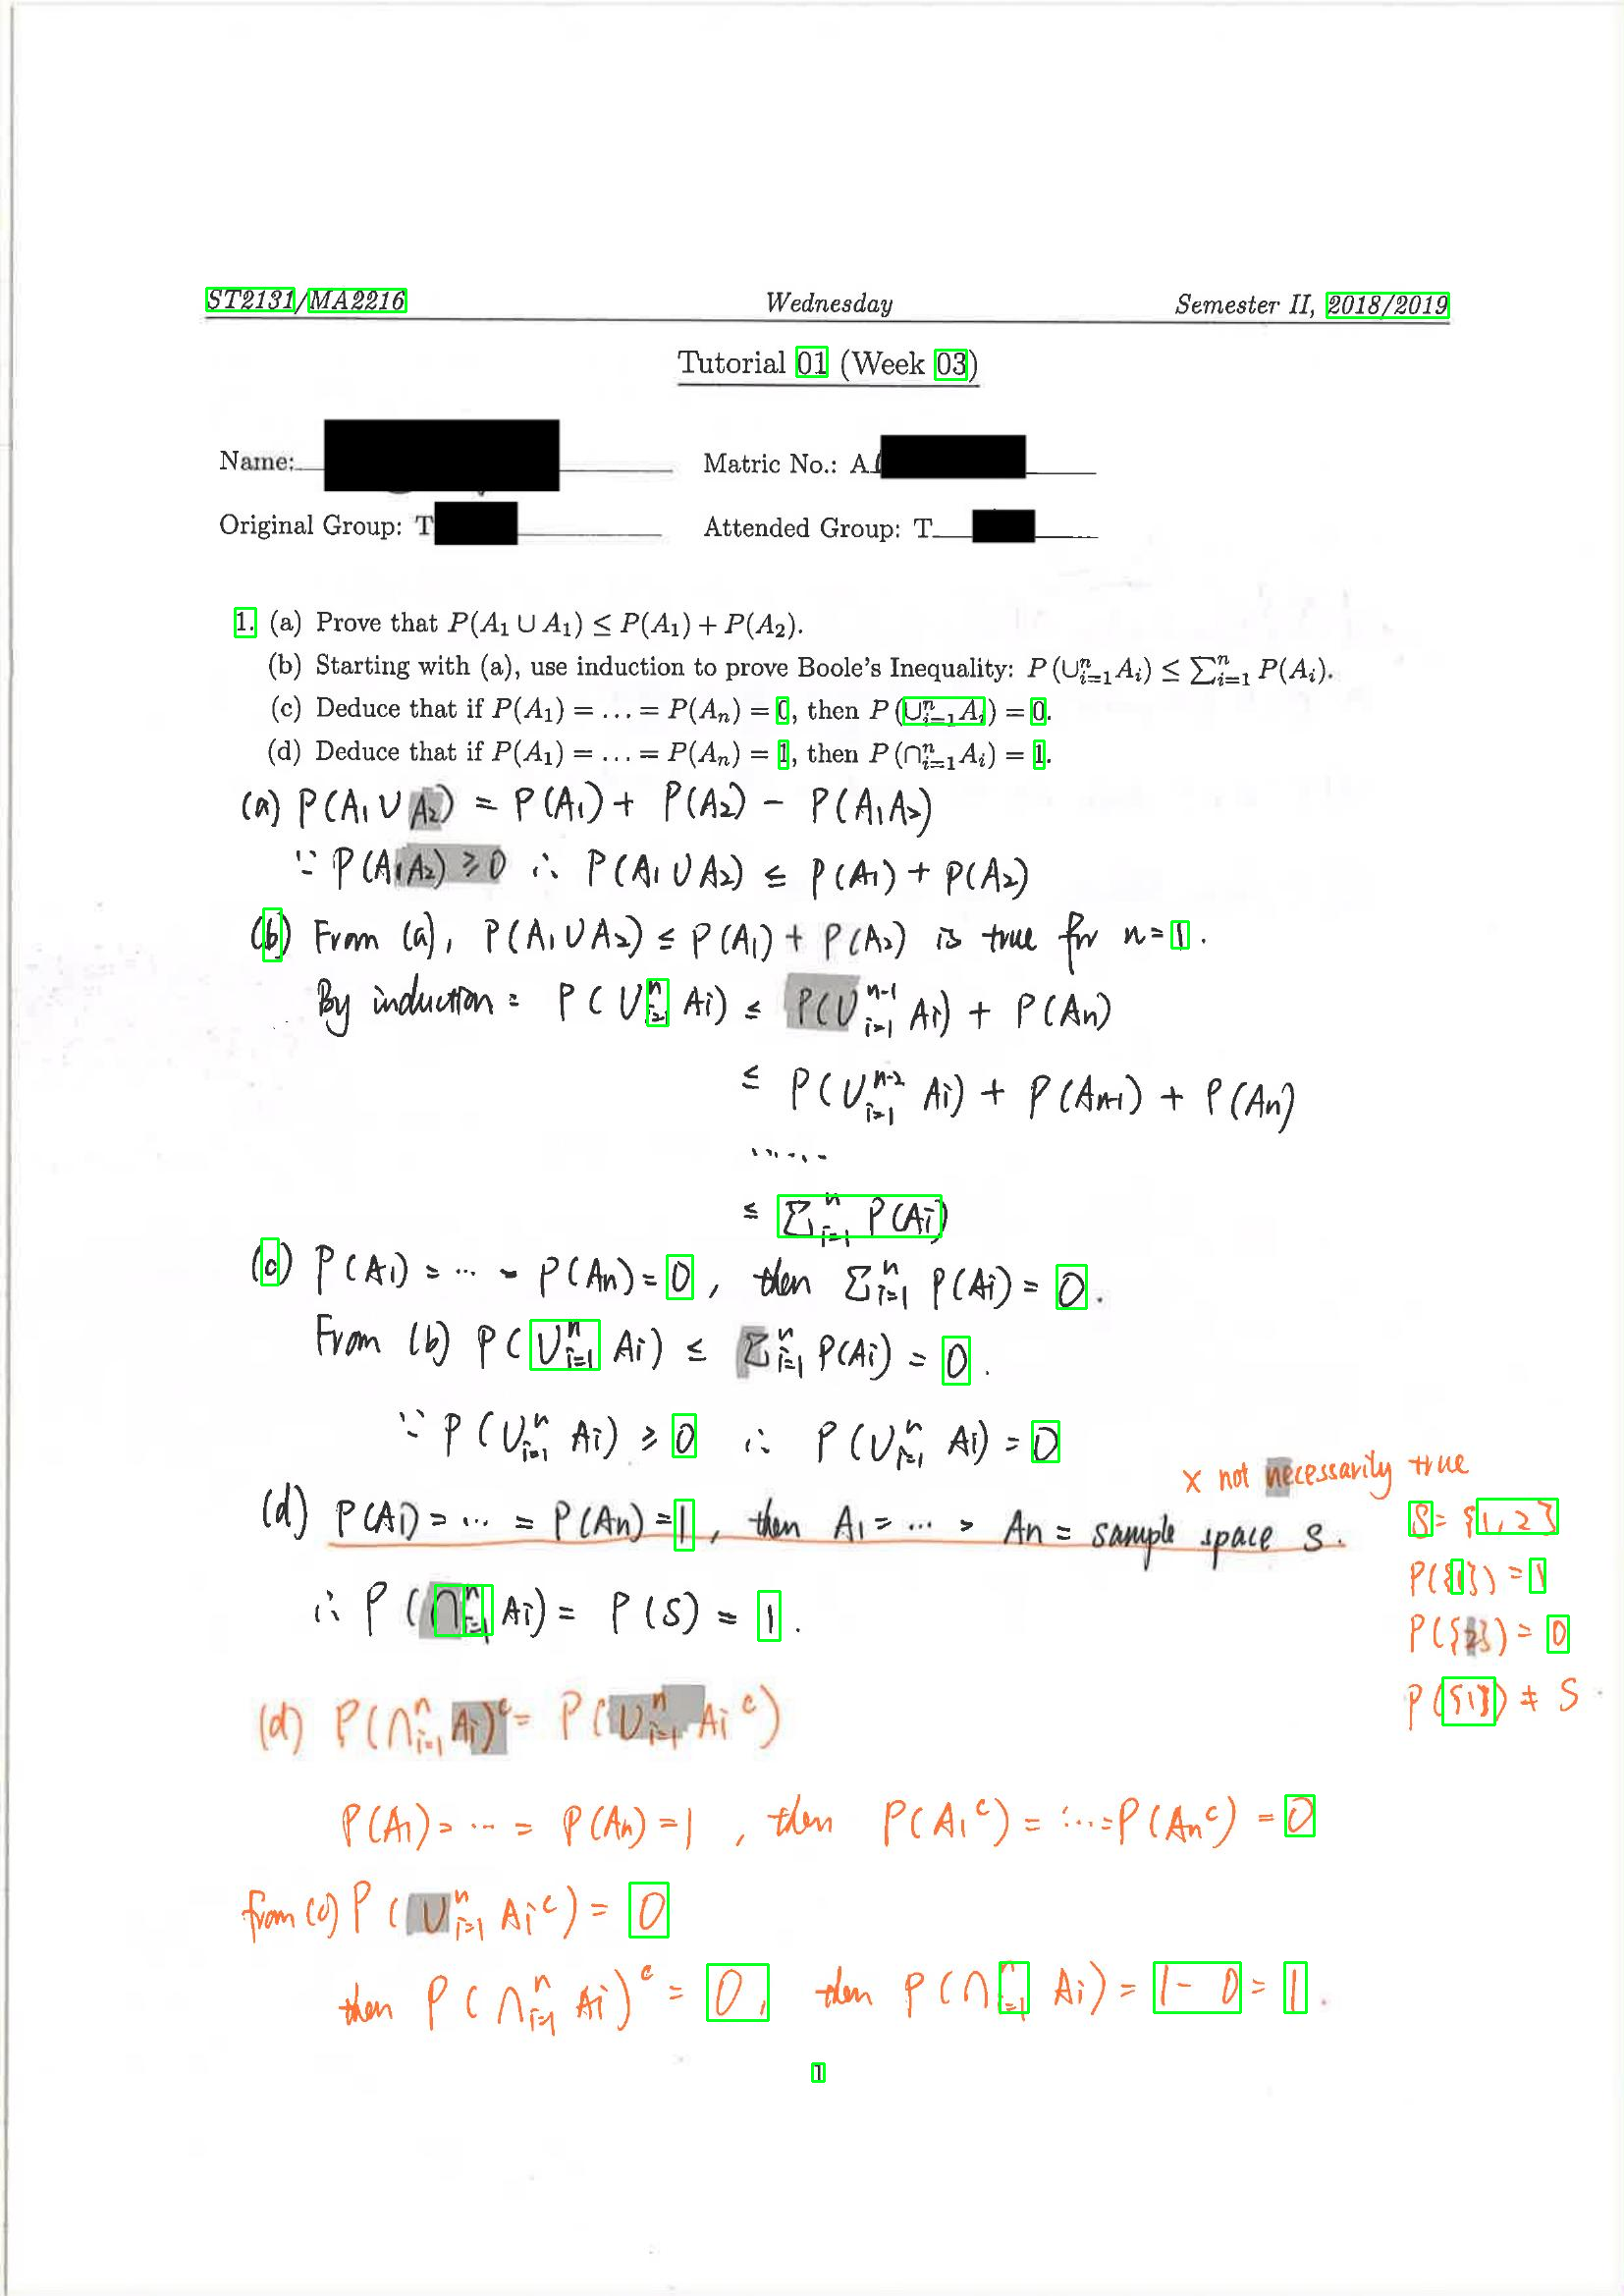 ST2131/MA2216 Wednesday Semester II, 2018/2019
Tutorial 01 (Week 03)
Name: Matric No.: A
Original Group: T Attended Group: T
1. (a) Prove that P(A₁ ∪ A₁) ≤ P(A₁) + P(A₂).
(b) Starting with (a), use induction to prove Boole's Inequality: P(∪ⁿᵢ₌₁Aᵢ) ≤ ∑ⁿᵢ₌₁ P(Aᵢ).
(c) Deduce that if P(A₁) = ... = P(Aₙ) = 0, then P(∪ⁿᵢ₌₁Aᵢ) = 0.
(d) Deduce that if P(A₁) = ... = P(Aₙ) = 1, then P(∩ⁿᵢ₌₁Aᵢ) = 1.
(a) P(A₁ ∪ A₂) = P(A₁) + P(A₂) − P(A₁A₂)
∵ P(A₁A₂) ≥ 0 ∴ P(A₁ ∪ A₂) ≤ P(A₁) + P(A₂)
(b) From (a), P(A₁ ∪ A₂) ≤ P(A₁) + P(A₂) is true for n = 1.
By induction = P(∪ⁿᵢ₌₁ Aᵢ) ≤ P(∪ⁿ⁻¹ᵢ₌₁ Aᵢ) + P(Aₙ)
≤ P(∪ⁿ⁻²ᵢ₌₁ Aᵢ) + P(Aₙ₋₁) + P(Aₙ)
......
≤ ∑ⁿᵢ₌₁ P(Aᵢ)
(c) P(A₁) = ... = P(Aₙ) = 0, then ∑ⁿᵢ₌₁ P(Aᵢ) = 0.
From (b) P(∪ⁿᵢ₌₁ Aᵢ) ≤ ∑ⁿᵢ₌₁ P(Aᵢ) = 0.
∵ P(∪ⁿᵢ₌₁ Aᵢ) ≥ 0 ∴ P(∪ⁿᵢ₌₁ Aᵢ) = 0
x not necessarily true
(d) P(A₁) = ... = P(Aₙ) = 1, then A₁ = ... = Aₙ = sample space S.
S = {1, 2}
P({1}) = 1
∴ P(∩ⁿᵢ₌₁ Aᵢ) = P(S) = 1.
P({2}) = 0
P({1}) ≠ S
(d) P(∩ⁿᵢ₌₁ Aᵢ)ᶜ = P(∪ⁿᵢ₌₁ Aᵢᶜ)
P(A₁) = ... = P(Aₙ) = 1, then P(A₁ᶜ) = ... = P(Aₙᶜ) = 0
from (c) P(∪ⁿᵢ₌₁ Aᵢᶜ) = 0
then P(∩ⁿᵢ₌₁ Aᵢ)ᶜ = 0, then P(∩ⁿᵢ₌₁ Aᵢ) = 1 − 0 = 1.
1